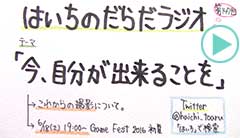 はいちのだらだラジオ
テーマ
「今、自分が出来ることを」
→これからの撮影について。
→6/18(土) 19:00〜 Game Fest 2016 初夏
Twitter
@haichi_tooru
「はいち」で検索